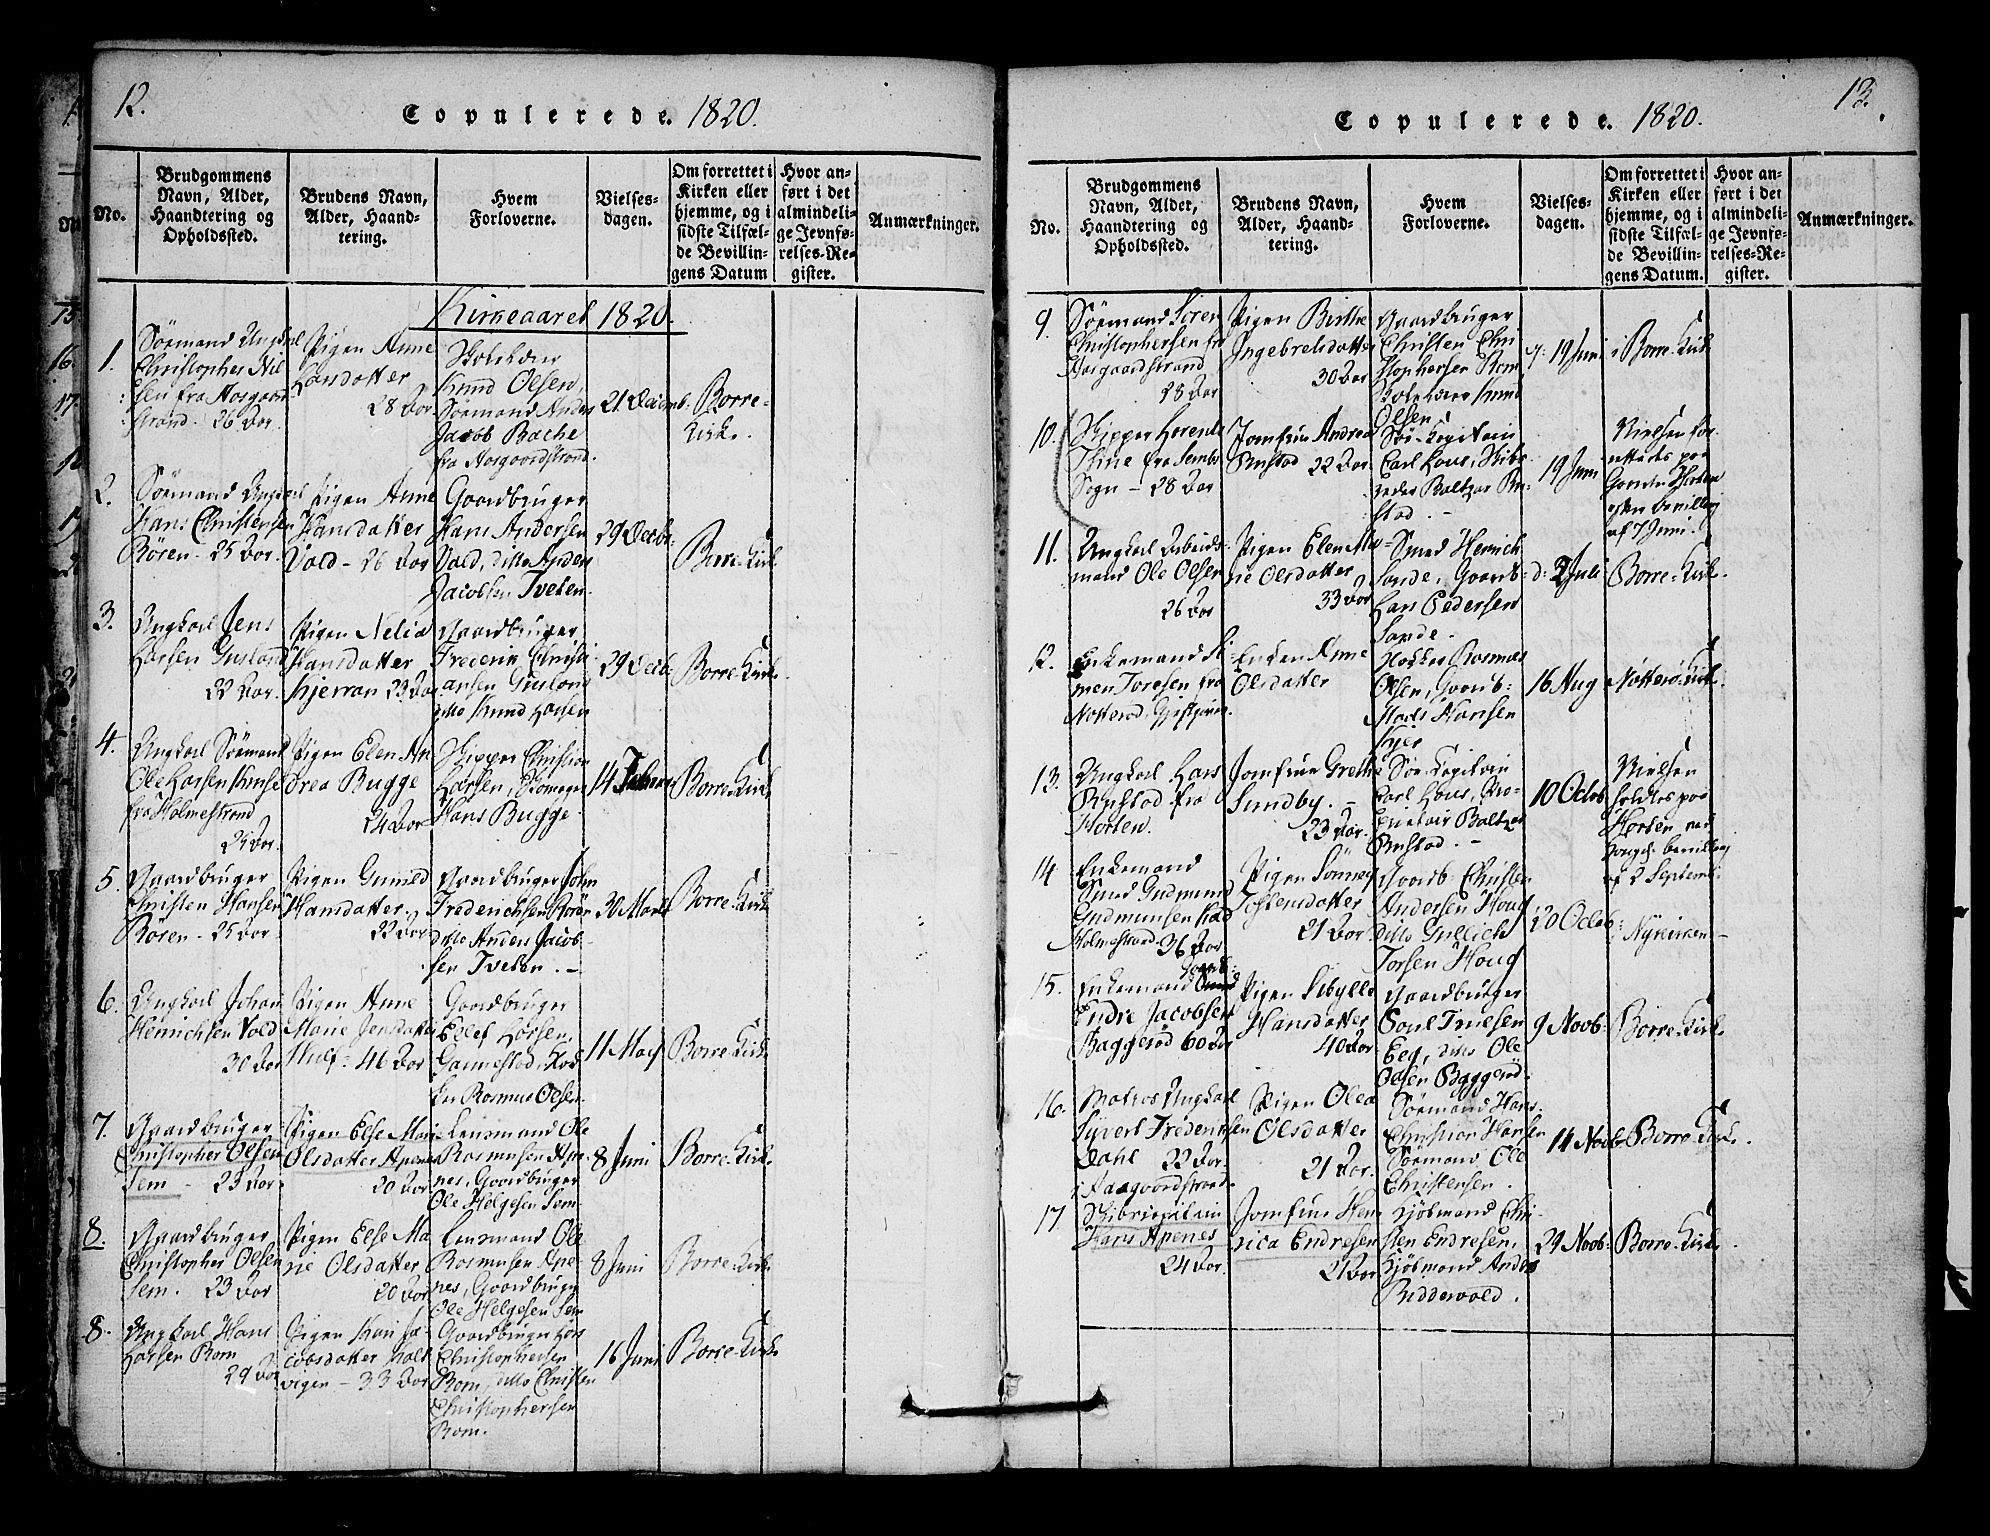 12.
Copulerede. 1820.
No.
Brudgommens
Navn, Alder,
Haandtering og
Opholdssted.
Brudens Navn,
Alder, Haand-
tering.
Hvem
Forloverne.
Vielses-
dagen.
Om forrettet i
Kirken eller
hjemme, og i
sidste Tilfæl-
de Bevillin-
gens Datum
Hvor an-
ført i det
almindeli-
ge Jevnfø-
relses-Re-
gister.
Anmærkninger.
Kirkeaaret 1820.
1.
Sømand Ungkarl
Christopher Niel
sen fra Aasgaard
strand. 26 Aar.
Pigen Anne
Larsdatter
28 Aar.
Skolelærer
Knud Olsen,
Sømand Anders
Jacob Bache
fra Aasgaardstrand.
21 Decemb.
Borre-
Kirke.
2.
Sømand Ungkarl
Hans Christensen
Røren - 25 Aar.
Pigen Anne
Hansdatter
Vold - 26 Aar
Gaardbruger
Hans Andersen
Vold, ditto Anders
Jacobsen Tveten.
29 Decbr.
Borre-Kirk.
3.
Ungkarl Jens
Larsen
22 Aar.
Pigen Nelia
Hansdatter
Kjerran 23 Aar
Gaardbruger
Frederik Christi-
ansen
ditto Knud Larsen
29 Decb.
Borre-Kirk.
4.
Ungkarl Sømand
Ole Larsen
fra Holmestrand
25 Aar.
Pigen Elen An
drea Bugge
24 Aar
Skipper Christian
Larsen,
Hans Bugge.
14 Februar
Borre-Kirk.
5.
Gaardbruger
Christen Hansen
Røren - 25 Aar.
Pigen Gunild
Hansdatter.
22 Aar.
Gaardbruger John
Frederichsen Røren
ditto Anders Jacob-
sen Tveten. -
30 Marti
Borre-Kirk.
6.
Ungkarl Johan
Henrichsen Vold
30 Aar
Pigen Anne
Marie Jensdatter
46 Aar
Gaardbruger
Ellef Larsen,
Gannestad,
Rasmus Olsen
11 May
Borre-Kirk.
7.
Gaardbruger
Christopher Olsen
Sem - 23 Aar.
Pigen Else Mari
Olsdatter Apenes
20 Aar
Lensmand Ole
Rasmusen Ape-
nes, Gaardbruger
Ole Helgesen Sem
8 Juni
Borre-Kirk.
8.
Gaardbruger
Christopher Olsen
Sem. 23 Aar
Pigen Else Ma
rie Olsdatter
20 Aar
Lensmand Ole
Rasmusen Ape-
nes, Gaardbruger
Ole Helgesen Sem
8 Juni
Borre-Kirk.
8.
Ungkarl Hans
Larsen Rom
29 Aar
Pigen Kari Ja-
cobsdatter Falk
vigen - 33 Aar
Gaardbruger Lars
Christophersen
Rom, ditto Christen
Christophersen
Rom.
16 Juni
Borre-Kirk.
13.
Copulerede. 1820.
No.
Brudgommens
Navn, Alder,
Haandtering og
Opholdssted.
Brudens Navn,
Alder, Haand-
tering.
Hvem
Forloverne.
Vielses-
dagen.
Om forrettet i
Kirken eller
hjemme, og i
sidste Tilfæl-
de Bevillin-
gens Datum.
Hvor an-
ført i det
almindeli-
ge Jevnfø-
relses-Re-
gister.
Anmærkninger.
9.
Sømand Søren
Christophersen fra
Aasgaardstrand
28 Aar
Pigen Birthe
Ingebretsdatter
30 Aar
Gaardbruger
Christen Chri
stophersen Rom
Skolelærer Knud
Olsen.
19 Juni
i Borre-Kirk
10.
Skipper Lorents
Thue fra Sembs
Sogn - 28 Aar
Jomfrue Andrea
Rustad 22 Aar.
Sø-Capitain
Carl Haus, Skibs-
reder Baltzar Ru-
stad. -
19 Juni
Vielsen for-
rettedes paa
Gaarden Horten
efter bevilling
af 7 Juni.
11.
Ungkarl Arbeids-
mand Ole Olsen
26 Aar
Pigen Elen Ma-
rie Olsdatter
33 Aar
Smed Henrich
Sande, Gaardb:
Lars Pedersen
Sande.
d: 2 Juli
Borre-Kirk.
12.
Enkemand Si-
men Toresen fra
Nøtterød,
Enken Anne
Olsdatter
Klokker Rasmus
Olsen, Gaardb:
Mads Hansen
Kjær
16 Aug
Nøtterø-Kirk.
13.
Ungkarl Lars
Rustad fra
Horten.
Jomfrue Grethe
Sundby. -
23 Aar.
Sø-Capitain
Carl Haus, Pro-
prietair Baltzar
Rustad. -
10 Octob
Vielsen
holdtes paa
Horten ved
Kongel. bevilling
af 2 Septemb:
14
Enkemand
Smed Gudmund
Gudmunsen
Holmestrand 36 Aar
Pigen Sønneg
Tostensdatter
21 Aar.
Gaardb Christen
Andersen Houg
ditto Gullich
Torsen Houg
20 Octob:
Nykirken -
15.
Gaardb:
Enkemand
Endre Jacobsen
Baggerød 60 Aar
Pigen Sibylle
Hansdatter
40 Aar
Gaardbruger
Poul Truesen
Eeg, ditto Ole
Olsen Baggerød.
9 Novb:
Borre-Kirk.
16.
Matros Ungkarl
Syvert Frederiksen
Dahl 22 Aar.
i Aasgaardstrand.
Pigen Olea
Olsdatter
21 Aar.
Sømand Hans
Christian Hansen
Sømand Ole
Christensen.
14 Novb.
Borre-Kirke.
17
Skibscapitain
Hans Apenes
24 Aar.
Jomfrue Hen
rica Endresen
21 Aar
Kjøbmand Chri-
sten Endresen,
Kjøbmand Anders
Riddervold.
29 Novb:
Borre-Kirk.